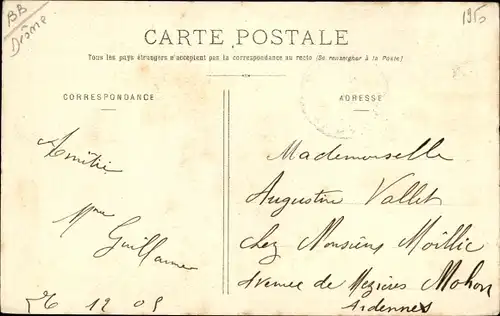 BB
Drôme
1950
CARTE POSTALE
Tous les pays étrangers n'acceptent pas la correspondance au recto (Se renseigner à la Poste)
CORRESPONDANCE
Amitié
Mme Guillaume
26 12 05
ADRESSE
Mademoiselle
Augustine Vallet
chez Monsieur Moillic
Avenue de Mezières Mohon
Ardennes